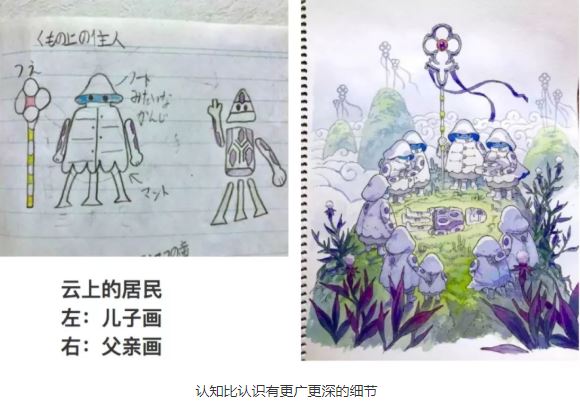 くもの上の住人
つえ
フード
みたいな
かんじ
マント
云上的居民
左：儿子画
右：父亲画
认知比认识有更广更深的细节